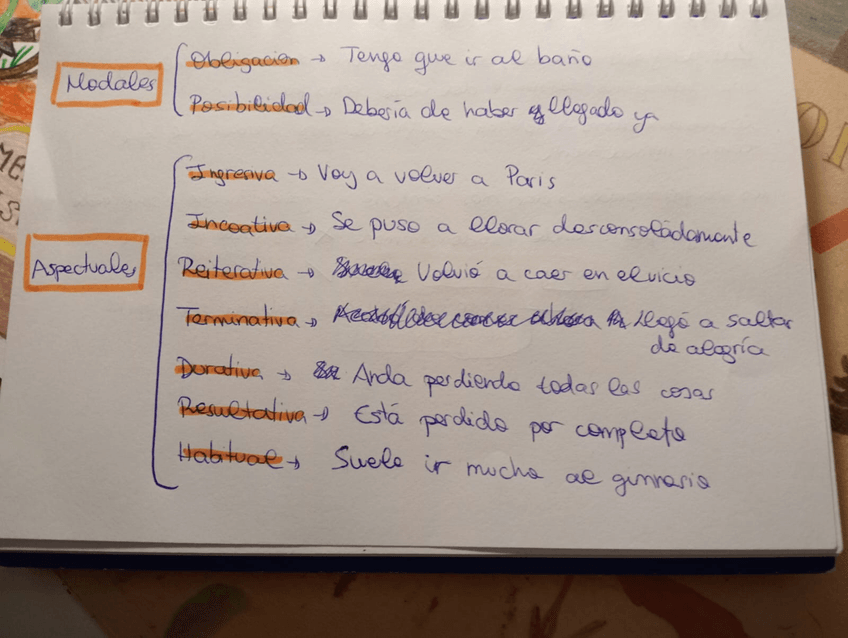 Modales
Obligación → Tengo que ir al baño
Posibilidad → Debería de haber llegado ya
Aspectuales
Ingresiva → Voy a volver a Paris
Incoativa → Se puso a llorar desconsoládamente
Reiterativa → Volvió a caer en el vicio
Terminativa → llegó a saltar
de alegría
Durativa → Anda perdiendo todas las cosas
Resultativa → Está perdido por completo
Habitual → Suele ir mucho al gimnasio